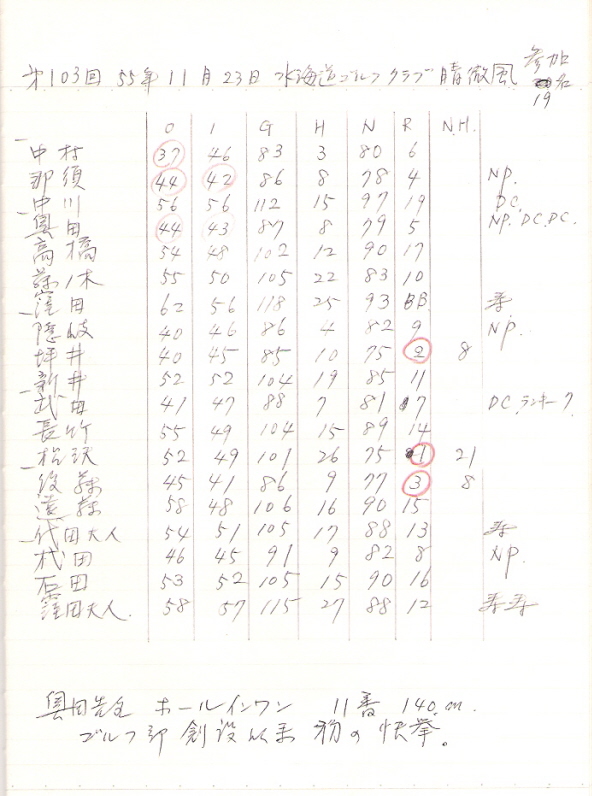 第103回 55年11月23日 水海道ゴルフクラブ 晴微風 参加19名
O I G H N R N.H.
中村 37 46 83 3 80 6
那須 44 42 86 8 78 4 NP.
中川 56 56 112 15 97 19 DC.
奥田 44 43 87 8 79 5 NP. DC. DC.
高橋 54 48 102 12 90 17
55 50 105 22 83 10
窪田 62 56 118 25 93 BB
隠岐 40 46 86 4 82 9 NP.
坪井 40 45 85 10 75 2 8
新井 52 52 104 19 85 11
武田 41 47 88 7 81 7 DC.
長竹 55 49 104 15 89 14
松沢 52 49 101 26 75 1 21
後藤 45 41 86 9 77 3 8
遠藤 58 48 106 16 90 15
代田夫人 54 51 105 17 88 13
代田 46 45 91 9 82 8 NP.
石田 53 52 105 15 90 16
窪田夫人. 58 57 115 27 88 12
奥田先生 ホールインワン 11番 140.m.
ゴルフ部 創設以来 初の快挙。